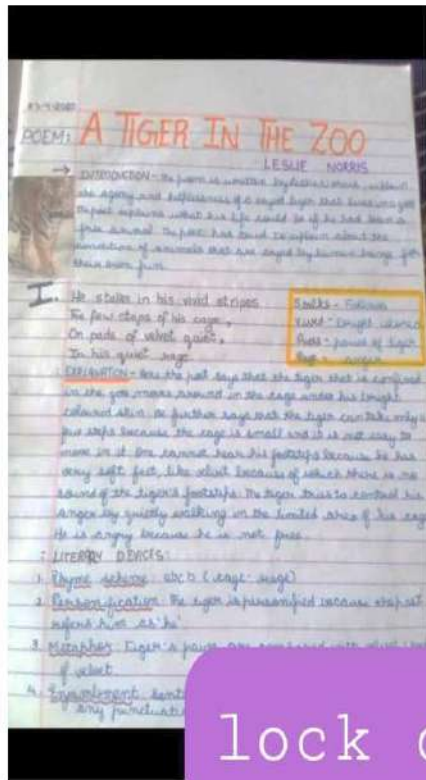 POEM: A TIGER IN THE ZOO
LESLIE NORRIS
→ INTRODUCTION - The poem is written by Leslie Norris,
the agony and helplessness of a caged tiger that lives in a zoo
The poet explains what his life could be if he had been a
free animal. The poet has tried to explain about the
of animals that are caged by human beings for
their own fun
I. He stalks in his vivid stripes
The few steps of his cage,
On pads of velvet quiet,
In his quiet rage.
Stalks - Follows
Vivid - bright
Pads - paws of tiger
Rage - anger
EXPLANATION - Here the poet says that the tiger that is confined
in the zoo moves around in the cage under his bright
coloured skin. He further says that the tiger can take only a
few steps because the cage is small and it is not easy to
move in it. One cannot hear his footsteps because he has
very soft feet, like velvet because of which there is no
sound of the tiger's footsteps. The tiger tries to control his
anger by quietly walking in the limited area of his cage
He is angry because he is not free.
: LITERARY DEVICES:
1. Rhyme scheme: abcb (cage - rage)
2. Personification: The tiger is personified because the poet
refers him as 'he'
3. Metaphor: Tiger's paws are compared with velvet
of velvet.
4. Enjambment:
any punctuati
lock